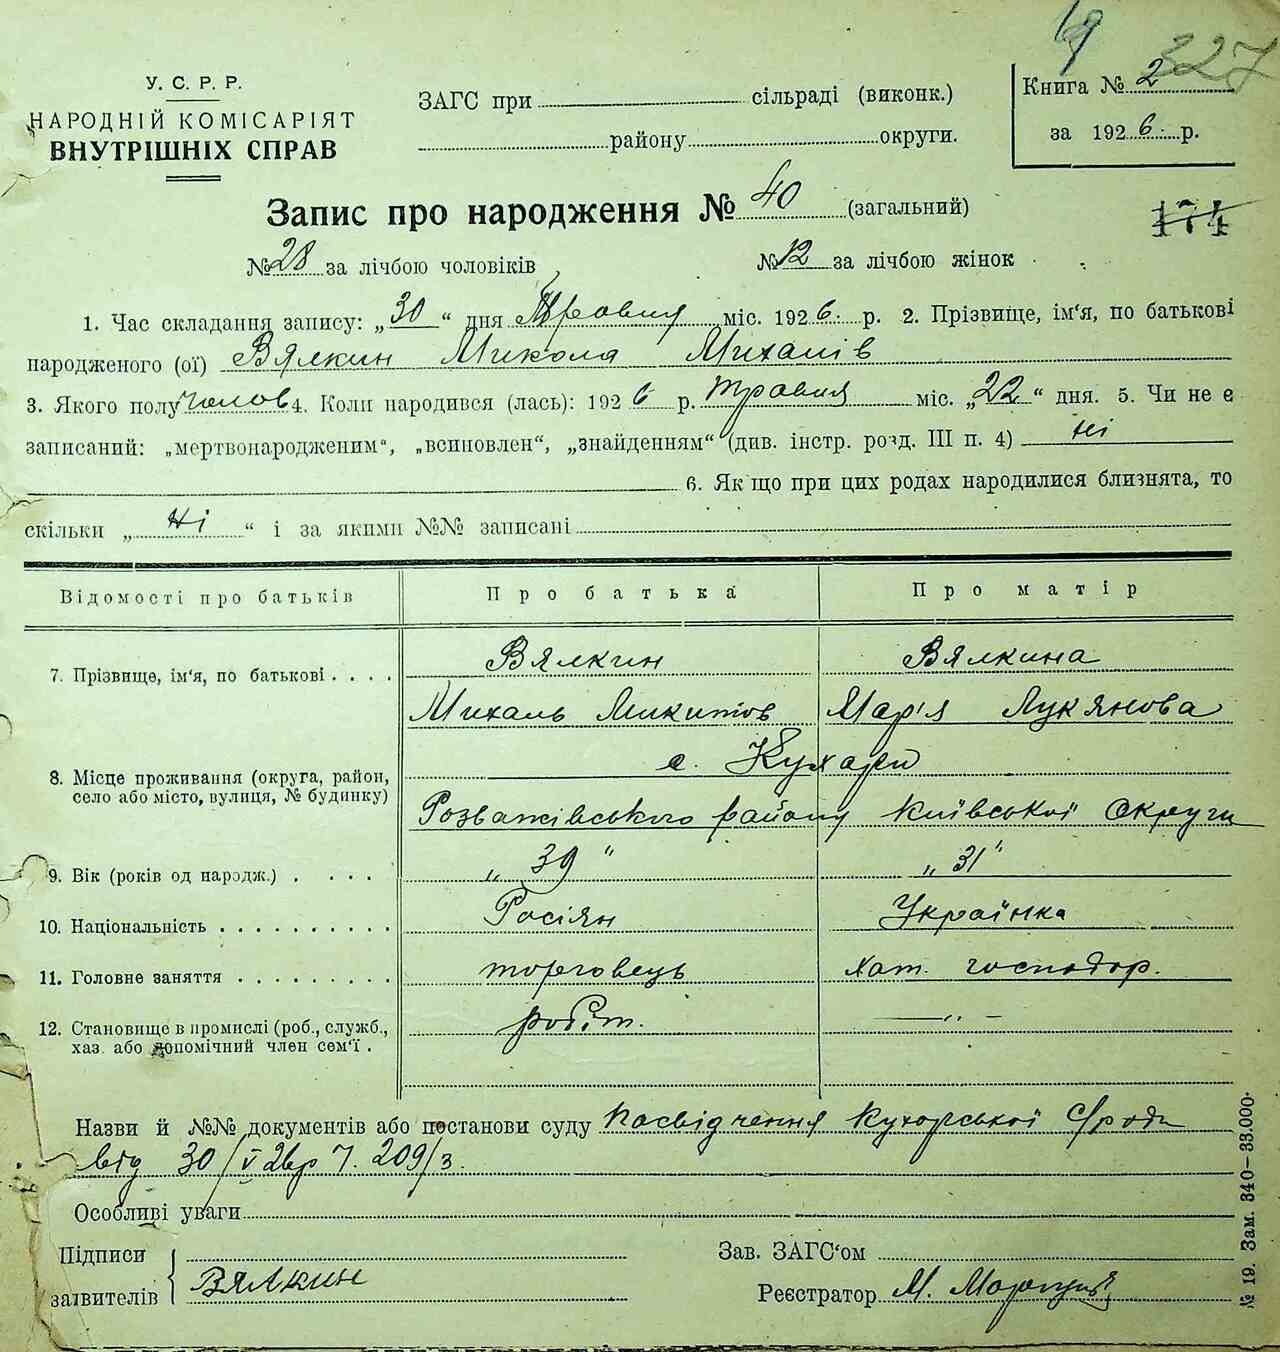 69 327
У. С. Р. Р.
НАРОДНІЙ КОМІСАРІЯТ
ВНУТРІШНІХ СПРАВ
ЗАГС при сільраді (виконк.)
району округи.
Книга № 2
за 1926 р.
Запис про народження № 40 (загальний)
174
№ 28 за лічбою чоловіків № 12 за лічбою жінок
1. Час складання запису: „30“ дня Травня міс. 1926 р. 2. Прізвище, ім'я, по батькові
народженого (ої) Вялкин Микола Михалів
3. Якого полу чолов 4. Коли народився (лась): 1926 р. травня міс. „22“ дня. 5. Чи не є
записаний: „мертвонародженим“, „всиновлен“, „знайденням“ (див. інстр. розд. III п. 4) ні
6. Як що при цих родах народилися близнята, то
скільки „ні“ і за якими №№ записані
Відомості про батьків Про батька Про матір
7. Прізвище, ім'я, по батькові . . . . Вялкин Вялкина
Михаль Микитов Мар'я Лукянова
8. Місце проживання (округа, район,
село або місто, вулиця, № будинку)
с. Кухари
Розважівського району Київської Округи
9. Вік (років од народж.) . . . . „39“ „31“
10. Національність . . . . . . . . . . Росіян Українка
11. Головне заняття . . . . . . . . . торговець хат. господор.
12. Становище в промислі (роб., служб.,
хаз. або допомічний член сем'ї . робіт. — „ —
Назви й №№ документів або постанови суду Посвідчення Кухорської с/роди
від 30/V 26р 7. 209/з.
Особливі уваги
Підписи
заявителів Вялкин
Зав. ЗАГС'ом
Реєстратор М.
№ 19. Зам. 340—33.000.